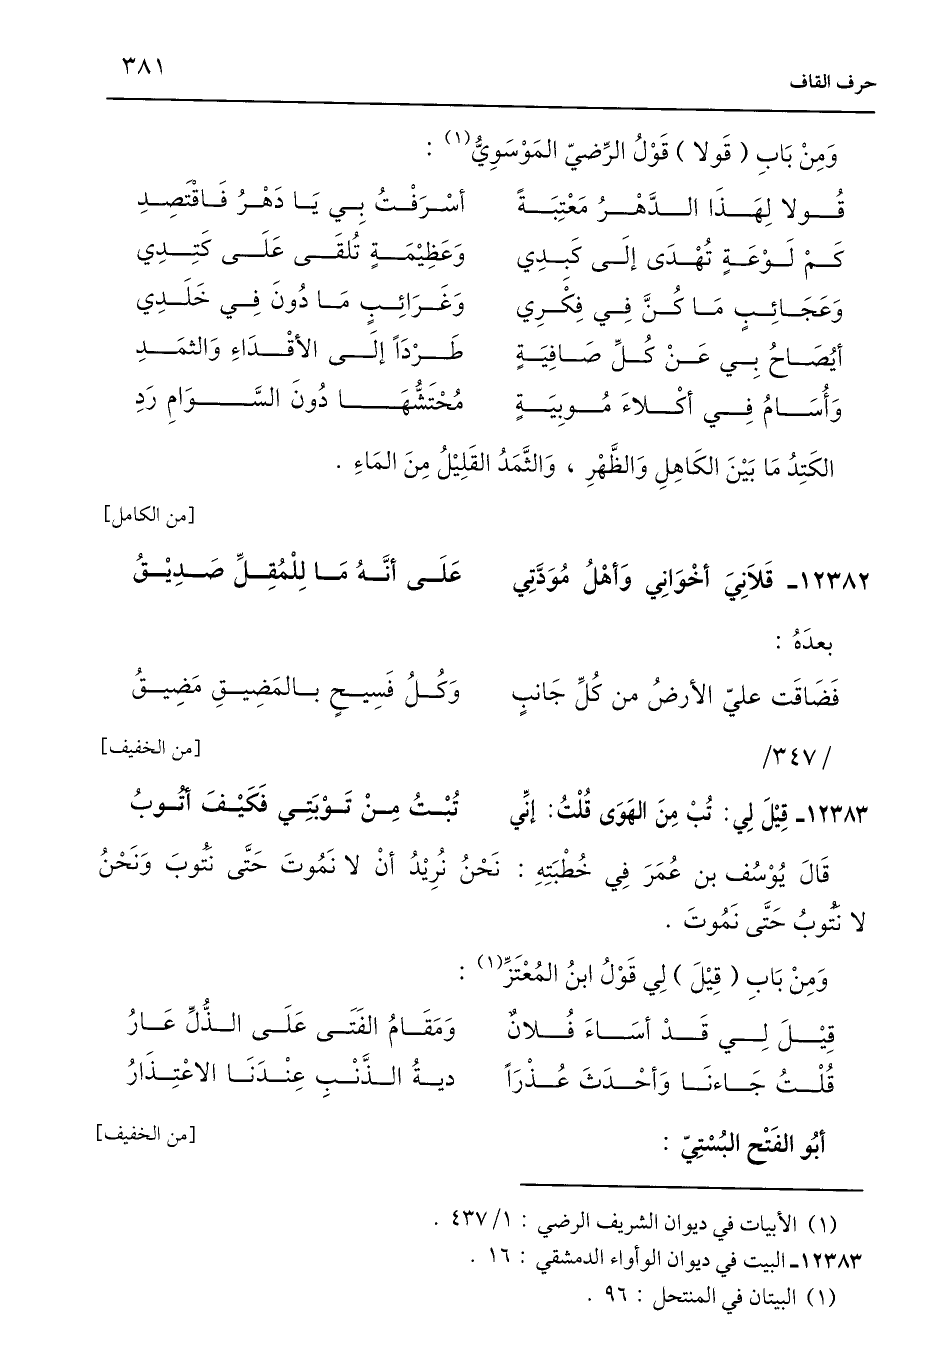 ٣٨١
حرف القاف
وَمِنْ بَابِ ( قَولا ) قَوْلُ الرِّضيّ المَوْسَوِيُّ(١) :
قُولا لِهَذَا الدَّهْرُ مَعْتِبَةً أسْرَفْتُ بِي يَا دَهْرُ فَاقْتَصِدِ
كَمْ لَوْعَةٍ تُهْدَى إلَى كَبِدِي وَعَظِيْمَةٍ تُلقَى عَلَى كَتِدِي
وَعَجَائِبٍ مَا كُنَّ فِي فِكْرِي وَغَرائِبٍ مَا دُونَ فِي خَلَدِي
أيُصَاحُ بِي عَنْ كُلِّ صَافِيَةٍ طَرْدَاً إلَى الأقْدَاءِ وَالثمَدِ
وَأُسَامُ فِي أكْلاءَ مُوبِيَةٍ مُحْتَشُّهَا دُونَ السَّوَامِ رَدِ
الكَتِدُ مَا بَيْنَ الكَاهِلِ وَالظَّهْرِ ، وَالثَّمَدُ القَلِيْلُ مِنَ المَاءِ .
[من الكامل]
١٢٣٨٢ـ قَلاَنِيَ أخْوَانِي وَأهْلُ مُوَدَّتِي عَلَى أنَّهُ مَا لِلْمُقِلِّ صَدِيْقُ
بعدَهُ :
فَضَاقَت عليّ الأرضُ من كُلِّ جَانبٍ وَكُلُ فَسِيحٍ بالمَضِيقِ مَضِيقُ
/٣٤٧/
[من الخفيف]
١٢٣٨٣ـ قِيْلَ لِي: تُبْ مِنَ الهَوَى قُلْتُ: إنِّي تُبْتُ مِنْ تَوْبَتِي فَكَيْفَ أتُوبُ
قَالَ يُوْسُف بن عُمَرَ فِي خُطْبَتِهِ : نَحْنُ نُرِيْدُ أنْ لا نَمُوتَ حَتَّى نَتُوبَ وَنَحْنُ
لا نَتُوبُ حَتَّى نَمُوتَ .
وَمِنْ بَابِ ( قِيْلَ ) لِي قَوْلُ ابنُ المُعْتَزِّ(١) :
قِيْلَ لِي قَدْ أسَاءَ فُلانٌ وَمَقَامُ الفَتَى عَلَى الذُّلِّ عَارُ
قُلْتُ جَاءنَا وَأحْدَثَ عُذْرَاً ديةُ الذَّنْبِ عِنْدَنَا الاعْتِذَارُ
[من الخفيف]
أبُو الفَتْحِ البُسْتِيّ :
(١) الأبيات في ديوان الشريف الرضي : ١/ ٤٣٧ .
١٢٣٨٣ـ البيت في ديوان الوأواء الدمشقي : ١٦ .
(١) البيتان في المنتحل : ٩٦ .